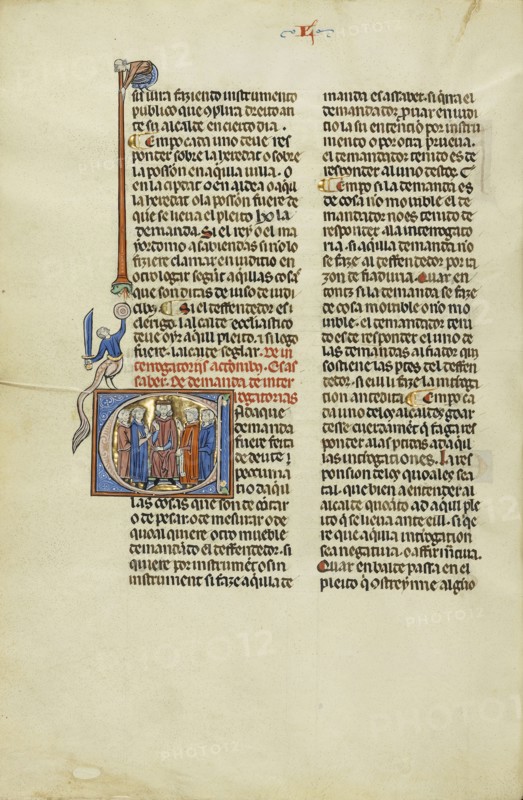 L
sin iura faziendo instrumento
publico que conplira dreito an
te su alcalde en cierto dia.
Empo cada uno deue res
ponder sobre la heredat o sobre
la possion en aquilla uilla. O
en la ciptat o en aldea o aqui
la heredat o la possion fuere de
que se lieua el pleito
demanda. Si el rey o el ma
yordomo a sabiendas si no lo
fiziere clamar en iuditio en
otro logar segunt aquillas cosas
que son ditas de iuso de iudi
Si el deffendedor es
clerigo. lalcalde ecclesiastico
deue oyr aqull pleito. i si lego
fuere. lalcalde seglar. De in
terrogatoriis actionibus. Es as
saber. De demanda de inter
rogatorias
da que
demanda
fuere feita
de deute
peccunia
rio da quil
las cosas que son de contar
o de pesar. o de mesurar o de
qual quiere otro mueble
demandando el deffendedor. si
quiere por instrument o sin
instrument si faze aquilla de
manda es assaber. si querra el
demandador prouar en iudi
tio la su entention por instru
mento o por otra prueua.
el demandador tenito es de
responder al uno destos.
Empo si la demanda es
de cosa no mouible el de
mandador no es tenito de
responder a la interrogato
ria. si aquilla demanda no
se faze al deffendedor por ra
zon de fiaduria. Quar en
tonz si la demanda se faze
de cosa mouible o no mo
uible. el demandador teni
do es de responder el uno de
las demandas al fiador qui
sostiene las partes del deffen
dedor. si eill li fizo la interroga
tion antedita. Empo ca
da uno de los alcaldes goar
desse cuerament que faga res
ponder a las partidas ad aqui
las interrogationes. La res
ponsion de los quoales sea
tal. que bien a entender al
alcalde quanto ad aquil ple
ito que se lieua ante eill. si quie
re que aquilla interrogation
sea negatiua. o affirmatiua.
Quar en balde passa en el
pleito